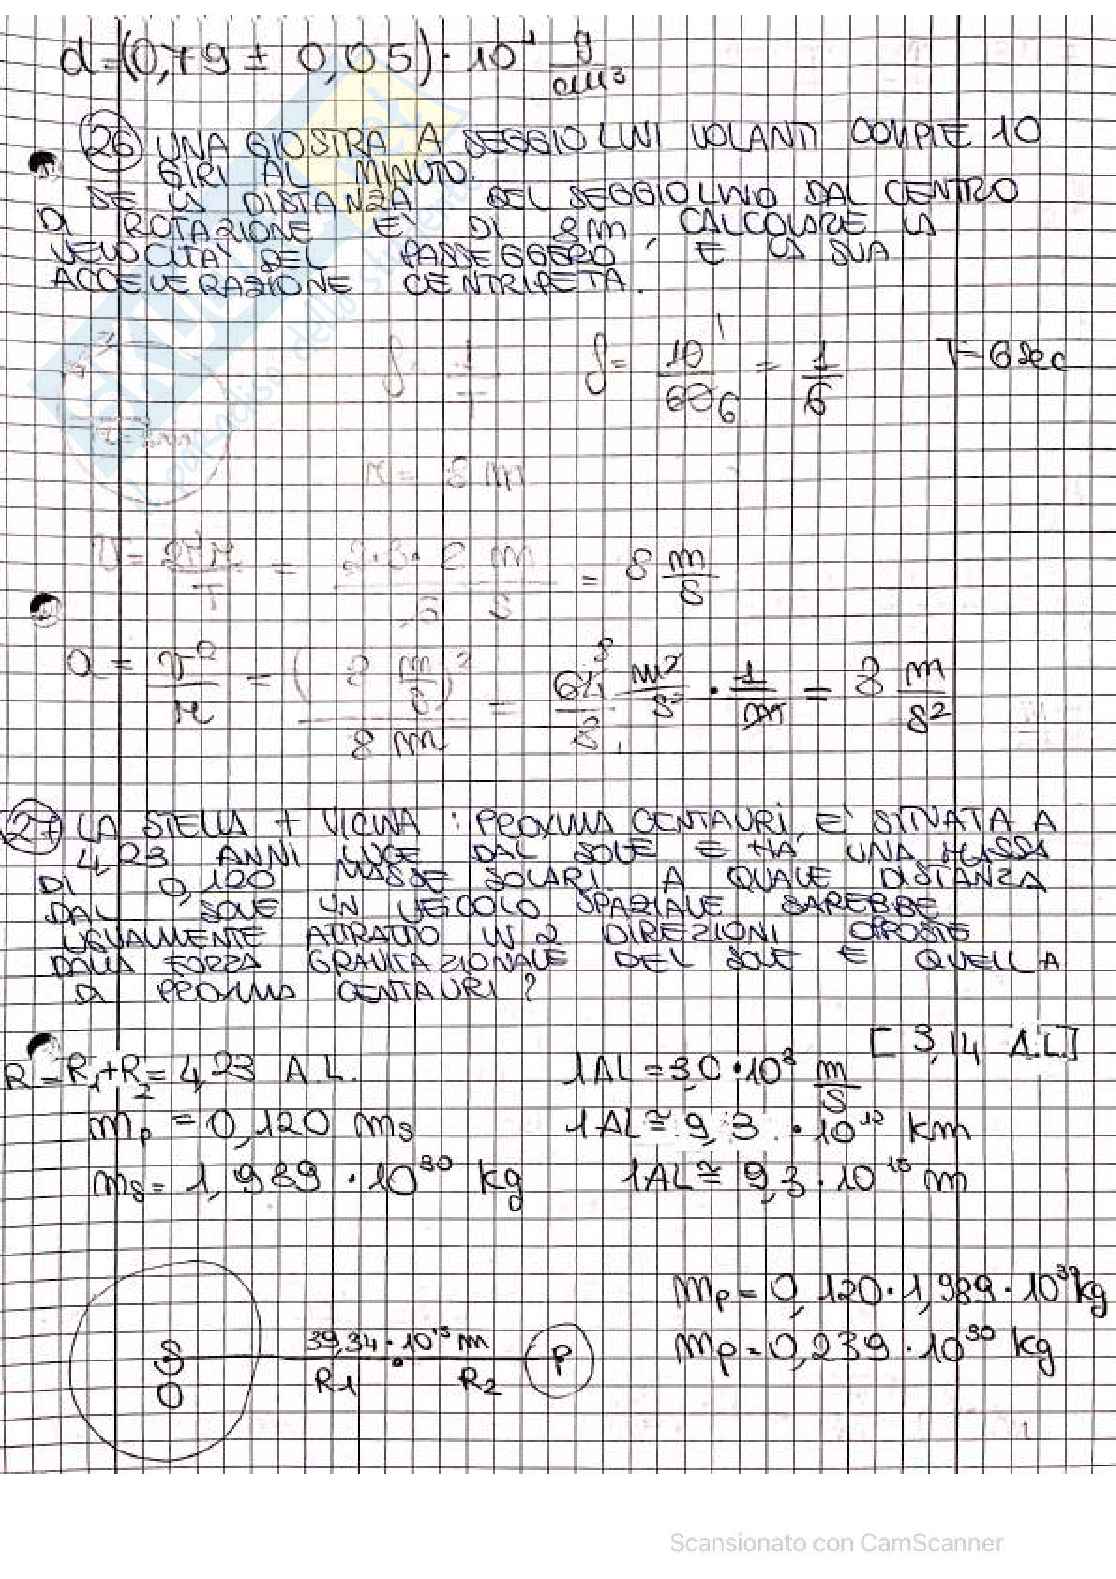 d=(0,79 ± 0,05)·10¹ g/cm³
26 UNA GIOSTRA A SEGGIOLINI VOLANTI COMPIE 10
GIRI AL MINUTO.
SE LA DISTANZA DEL SEGGIOLINO DAL CENTRO
DI ROTAZIONE E' DI 8m, CALCOLARE LA
VELOCITA' DEL PASSEGGERO E LA SUA
ACCELERAZIONE CENTRIPETA.
f= 1/T f= 10/60 = 1/6 T=6sec
r= 8 m
v= 2πr/T = = 8 m/s
a = v²/r = (8 m/s)²/8 m = 64/8 m²/s² · 1/m = 8 m/s²
27 LA STELLA + VICINA : PROXIMA CENTAURI, E' SITUATA A
4,23 ANNI LUCE DAL SOLE E HA UNA MASSA
DI 0,120 MASSE SOLARI. A QUALE DISTANZA
DAL SOLE UN VEICOLO SPAZIALE SAREBBE
UGUALMENTE ATTRATTO IN 2 DIREZIONI OPPOSTE
DALLA FORZA GRAVITAZIONALE DEL SOLE E QUELLA
DI PROXIMA CENTAURI?
[3,14 A.L.]
R=R₁+R₂= 4,23 A.L. 1AL=3,0·10⁸ m/s
mp = 0,120 ms 1AL≅ 9,3 ·10¹² km
ms= 1,989·10³⁰ kg 1AL≅ 9,3·10¹⁵ m
mp=0,120·1,989·10³⁰kg
39,34·10¹⁵ m
S P mp=0,239·10³⁰ kg
R₁ R₂
O
Scansionato con CamScanner